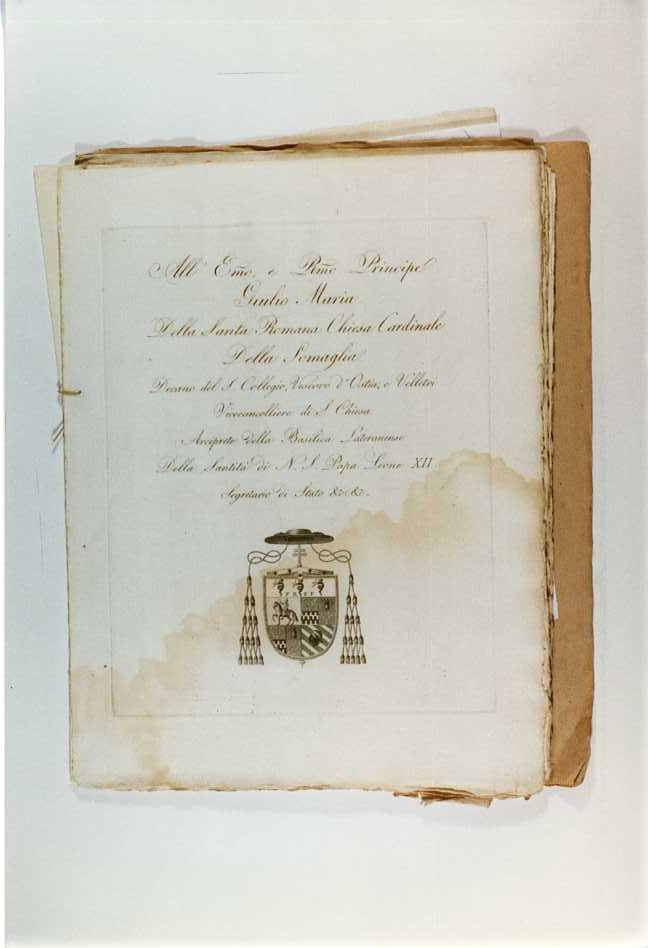 All' Emo, e Rmo Principe
Giulio Maria
Della Santa Romana Chiesa Cardinale
Della Somaglia
Decano del S. Collegio, Vescovo d' Ostia, e Velletri
Vicecancelliere di S. Chiesa
Arciprete della Basilica Lateranense
Della Santità di N. S. Papa Leone XII.
Segretario di Stato &c. &c.